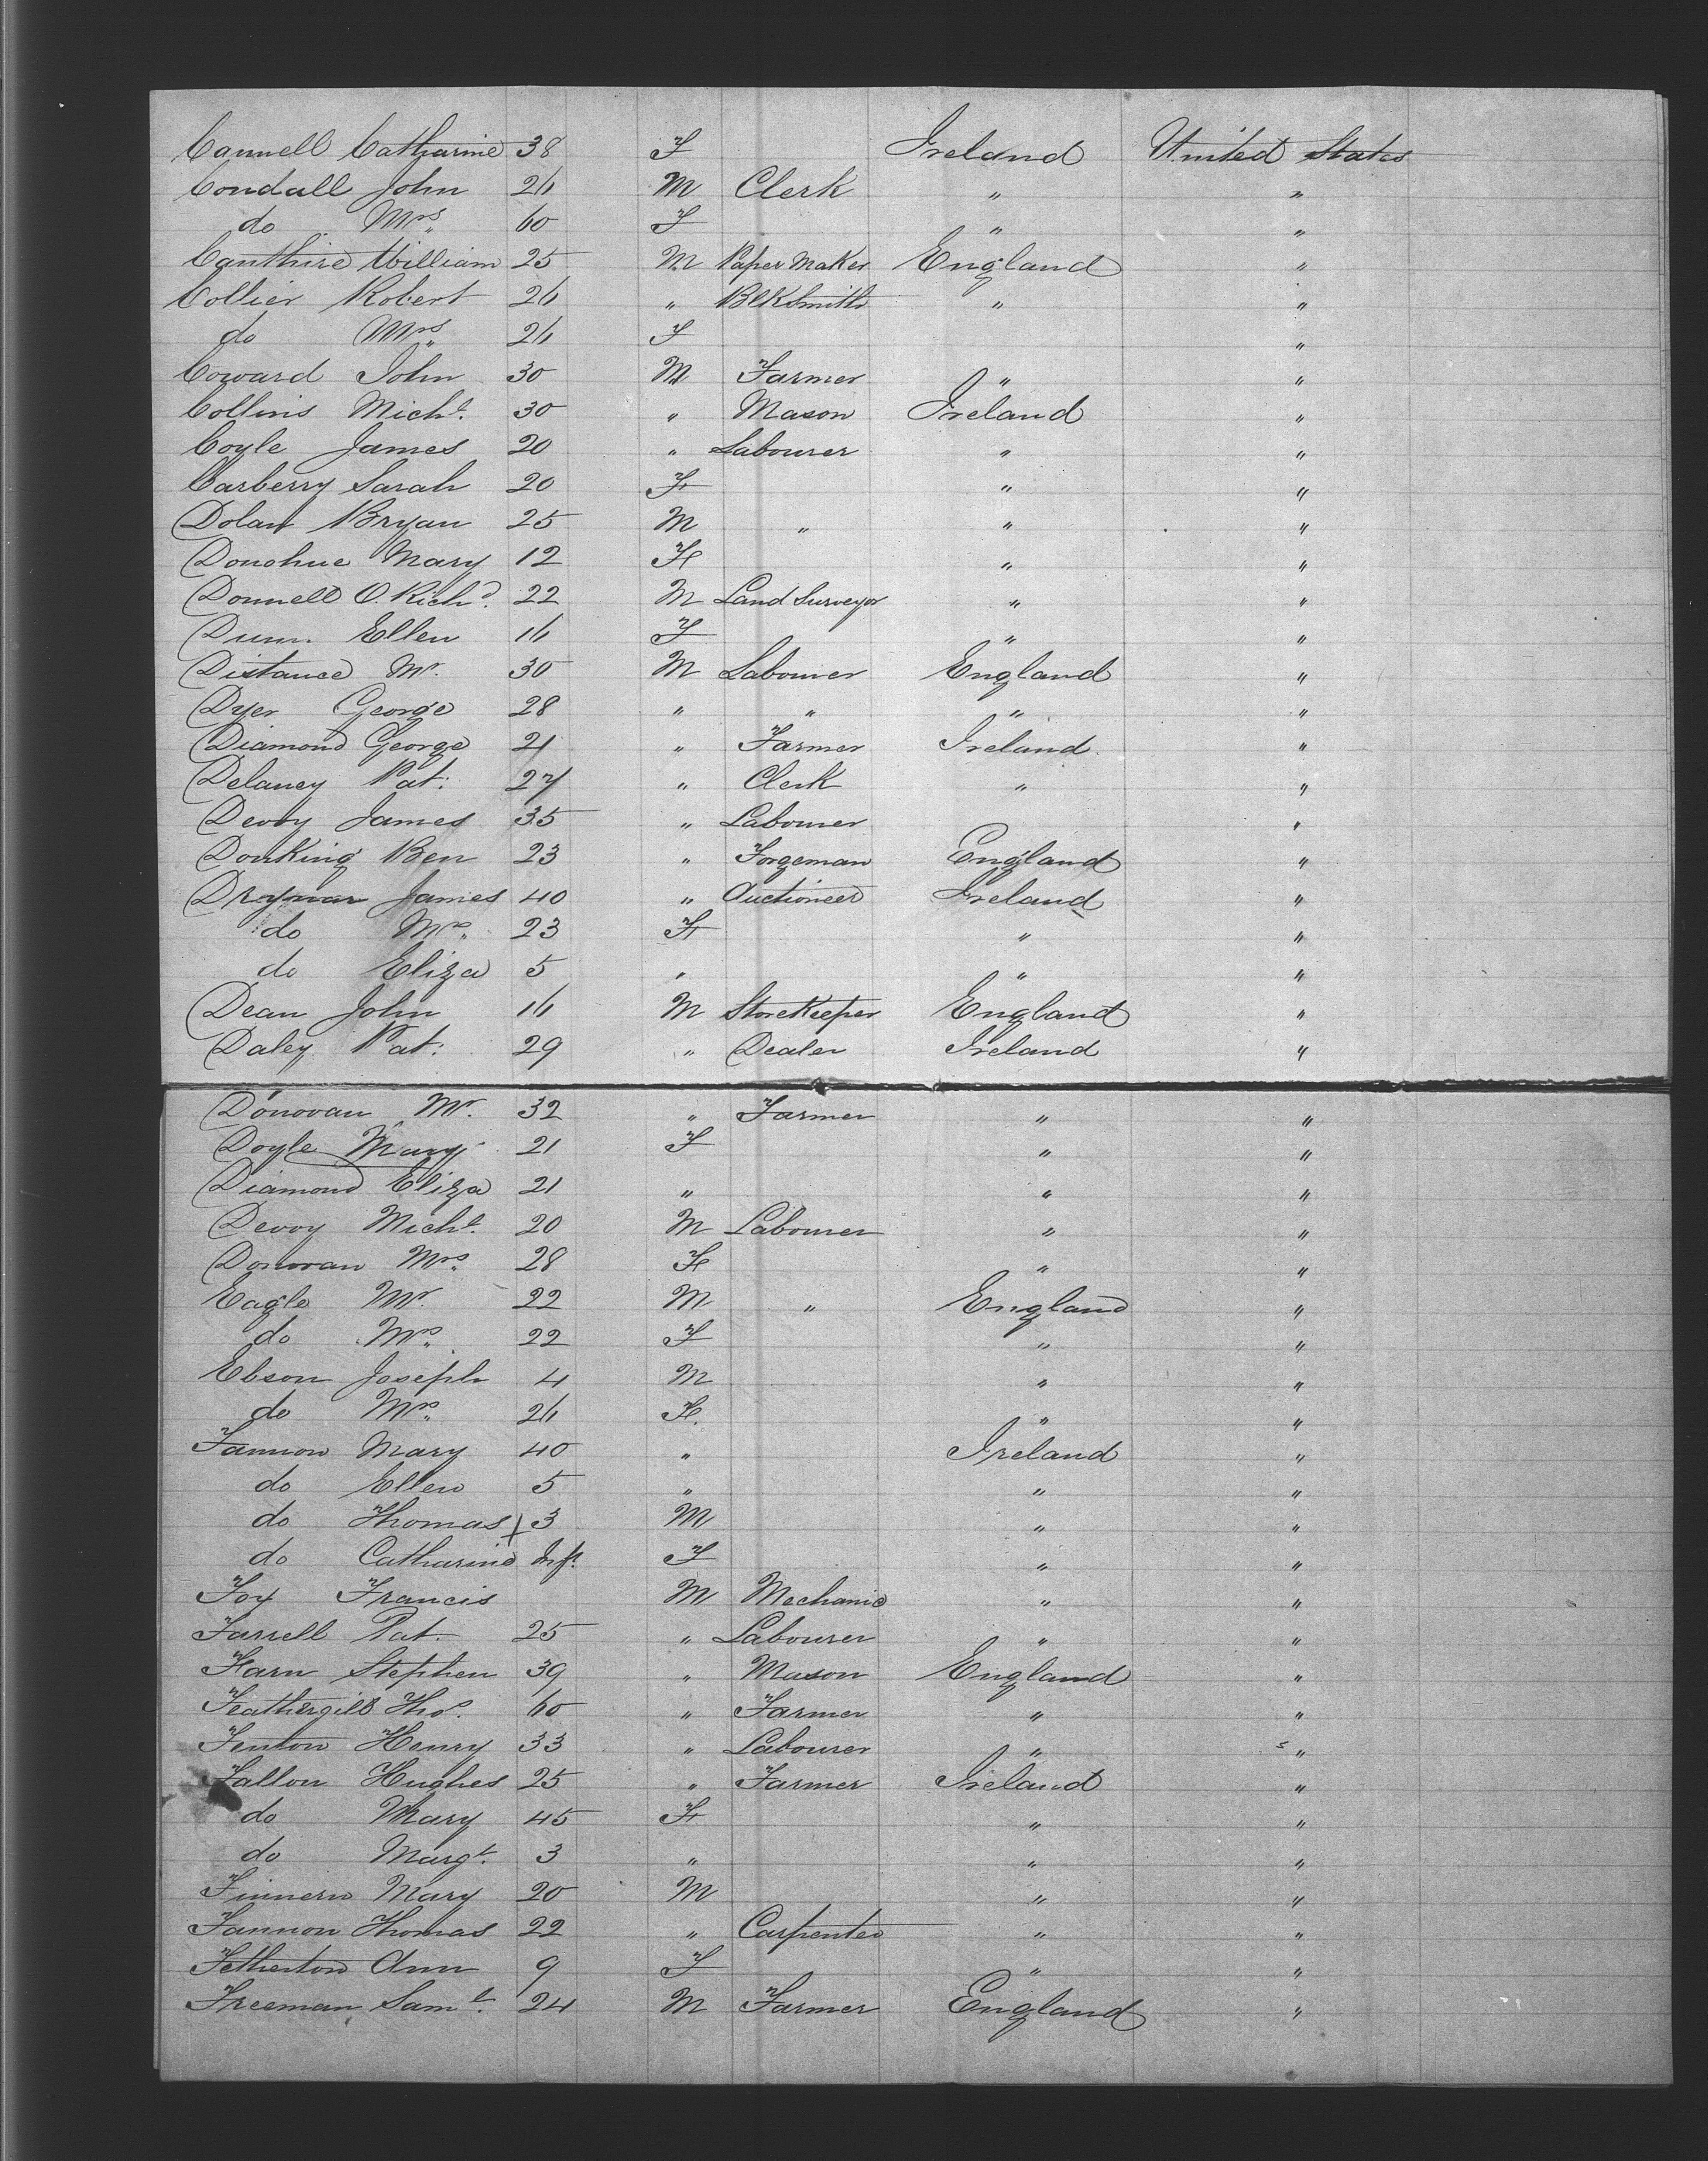 Cannell Catharine 38 F Ireland United States
Condall John 26 M Clerk " "
do Mrs 60 F " "
Canthire William 25 M Paper Maker England "
Collier Robert 26 " BlkSmith " "
do Mrs 26 F "
Coward John 30 M Farmer " "
Collins Michl. 30 " Mason Ireland "
Coyle James 20 " Labourer " "
Carberry Sarah 20 F " "
Dolan Bryan 25 M " " "
Donohue Mary 12 F " "
Donnell O. Richd. 22 M Land Surveyor " "
Dunn Ellen 16 F " "
Distance Mr. 30 M Labourer England "
Dyer George 28 " " " "
Diamond George 21 " Farmer Ireland "
Delaney Pat. 27 " Clerk " "
Devoy James 35 " Labourer "
Donking Ben 23 " Forgeman England "
James 40 " Auctioneer Ireland "
do Mrs. 23 F " "
do Eliza 5 " " "
Dean John 16 M StoreKeeper England "
Daley Pat. 29 " Dealer Ireland "
Donovan Mr. 32 " Farmer " "
Doyle Mary 21 F " "
Diamond Eliza 21 " " "
Devoy Michl. 20 M Labourer " "
Donovan Mrs. 28 F " "
Eagle Mr. 22 M " England "
do Mrs. 22 F " "
Ebson Joseph 4 M " "
do Mrs. 26 F. " "
Fannon Mary 40 " Ireland "
do Ellen 5 " " "
do Thomas 3 M " "
do Catharine Inft. F " "
Fox Francis M Mechanic " "
Farrell Pat. 25 " Labourer " "
Harn Stephen 39 " Mason England "
Feathergill Thos. 60 " Farmer " "
Fenton Henry 33 " Labourer " "
Fallon Hughes 25 " Farmer Ireland "
do Mary 45 F " "
do Margt. 3 " " "
Finnern Mary 20 M " "
Fannon Thomas 22 " Carpenter " "
Fetherton Ann 9 F " "
Freeman Saml. 24 M Farmer England "